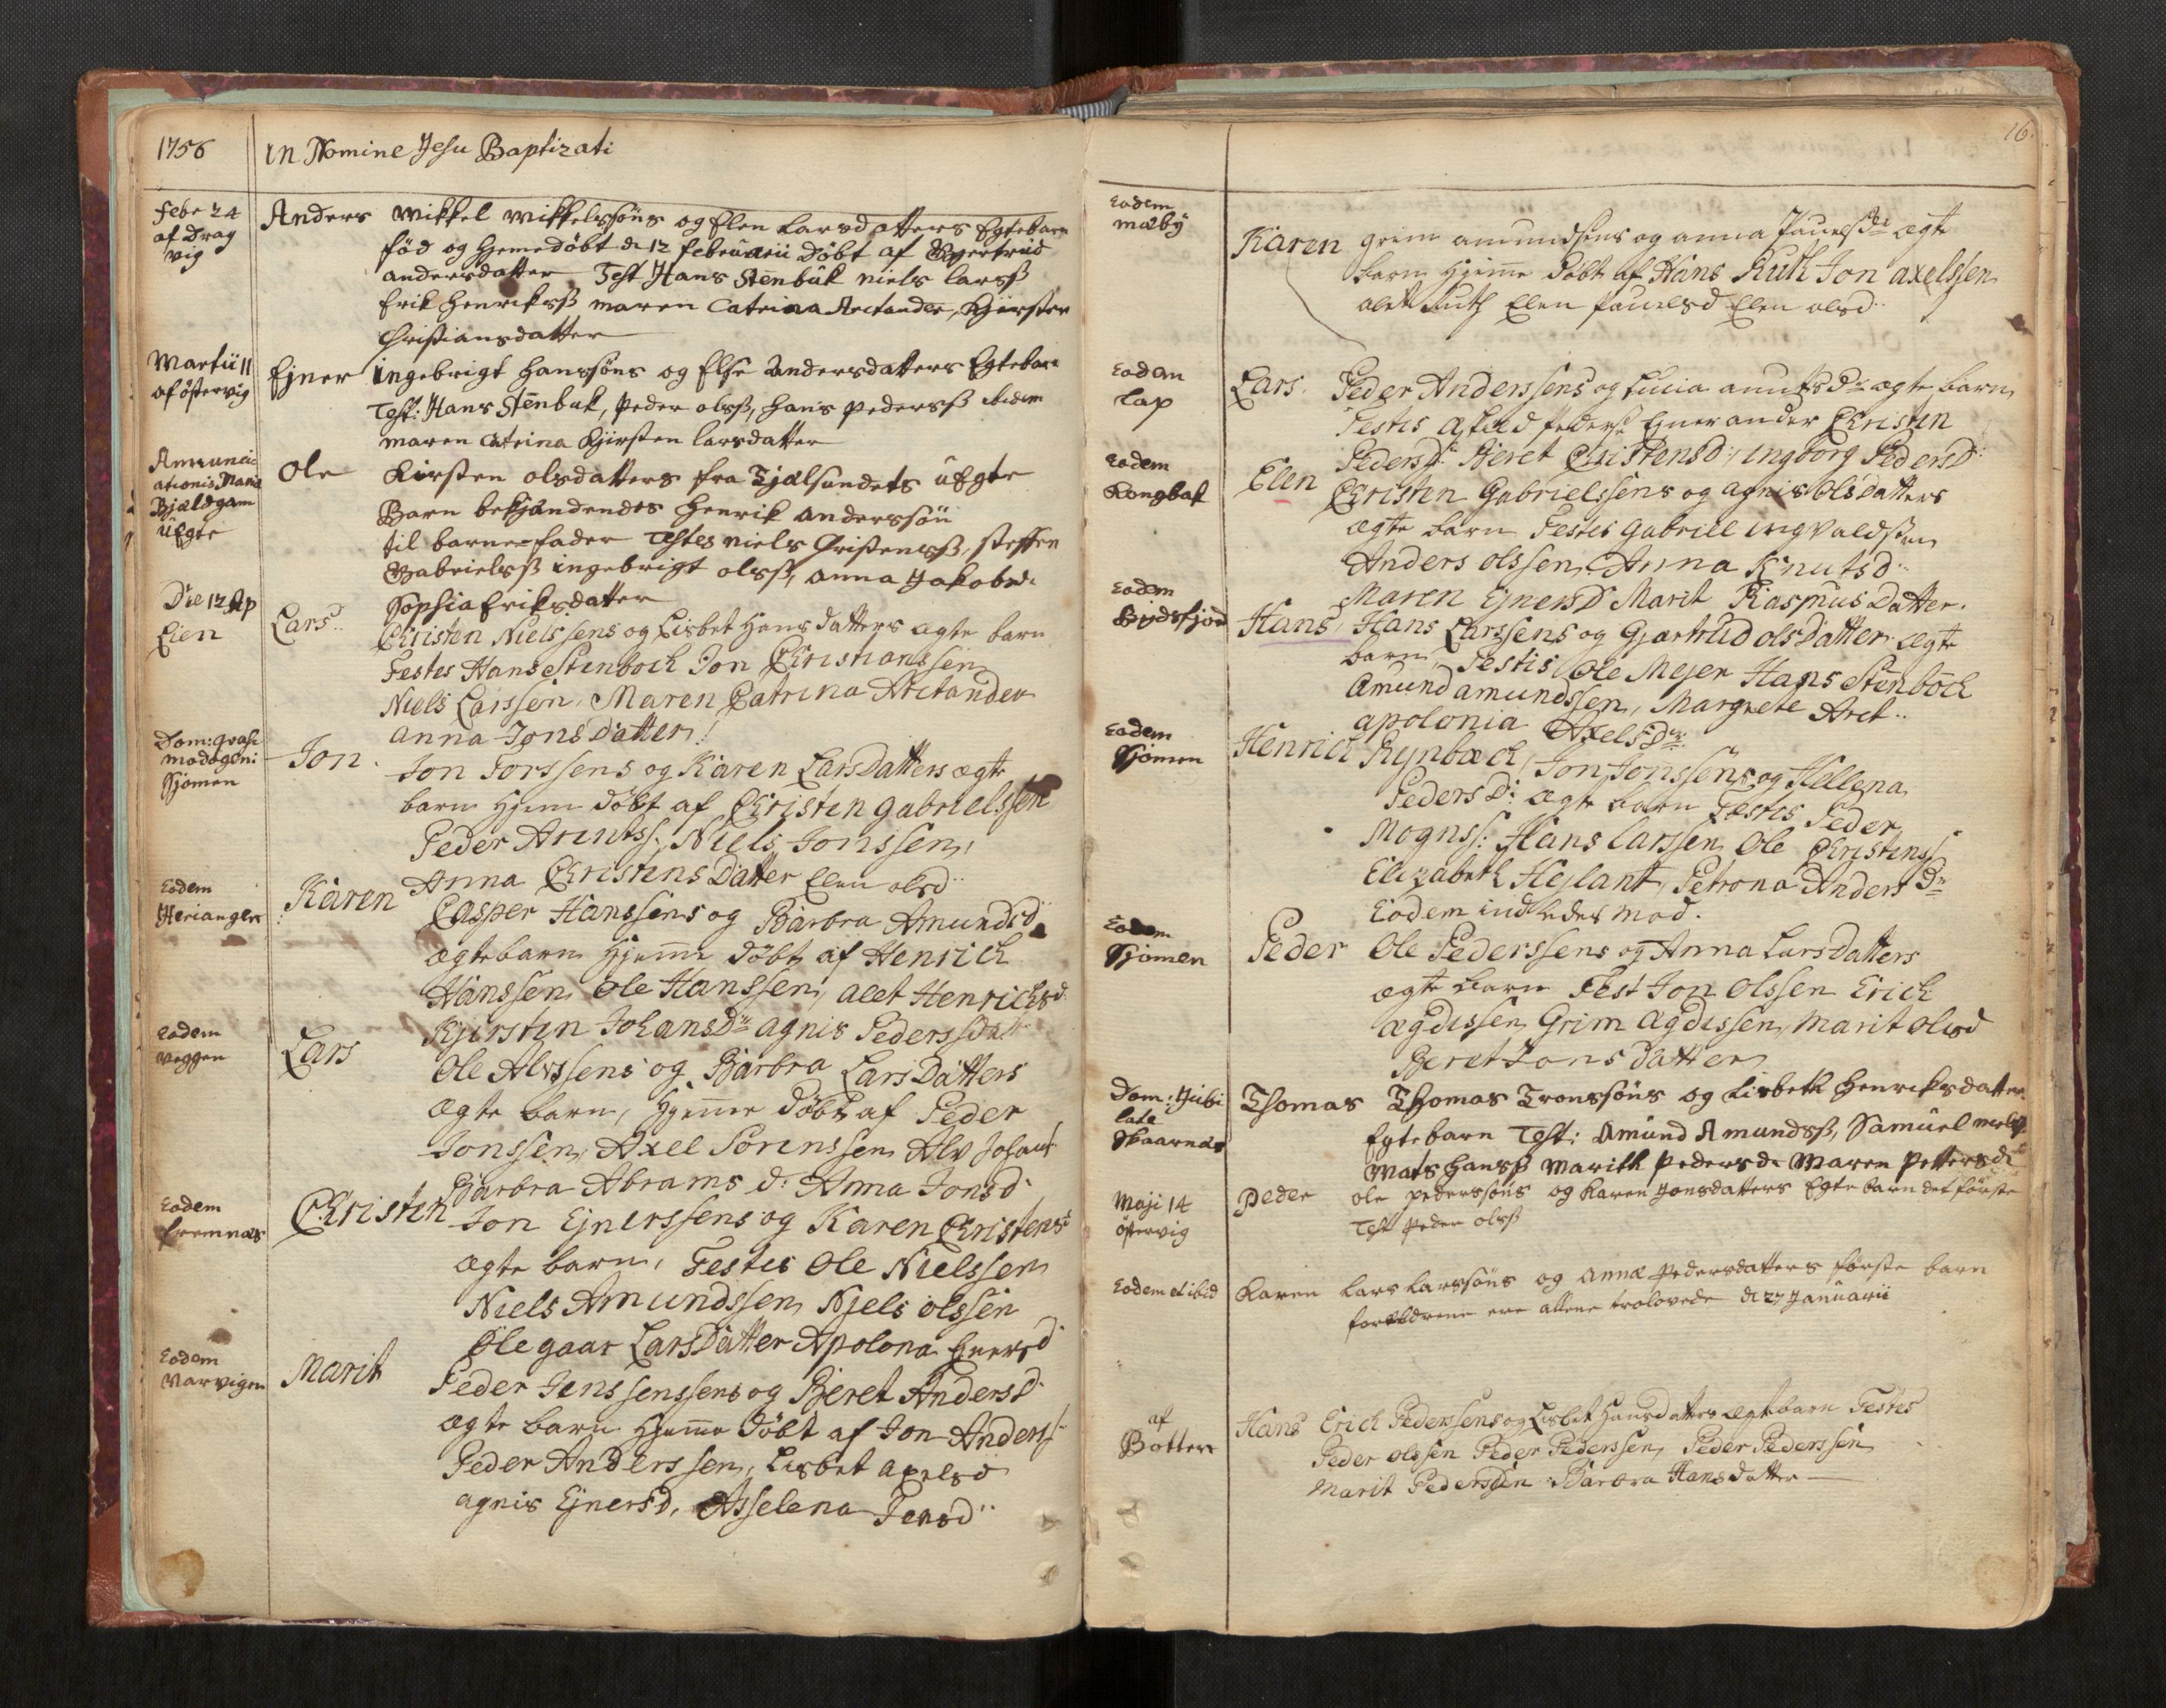 1756
in Nomine Jesu Baptizati
Febr 24
af Drag
vig
Anders
Mikkel Mikkelssöns og Elen Larsdatters Egtebarn
föd og hjemedöbt d. 12 Februarii Döbt af Gjertrud
andersdatter Test Hans Stenbuk Niels larsß
Erik henriksß maren Catrina Arctander, Kjirsten
Christiansdatter
Martii 11
af östervig
Ejner
ingebrigt hanssöns og Else Andersdatters Egtebarn
Test: Hans Stenbuk, Peder olsß, hans pedersß ibidem
maren Catrina Kjirsten larsdatter
Annunci
ationis Maria
Bjældgam
uEgte
Ole
Kirsten olsdatters fra Tjælsundets uEgte
Barn bekjændendes Henrik anderssön
til barnefader Testes Niels Christensß, steffen
Gabrielsß ingebrigt olsß, anna Jakobsd.
Sophia Eriksdatter
Die 12 Ap
Lien
Lars
Christen Nielssens og Lisbet Hansdatters ægte barn
Testes Hans Stenboch Jon Christianssen
Niels Larssen, Maren Catrina Arctander
anna Jonsdatter
Dom: qvasi
modogeni
Sjomen
Jon
Jon Jorssens og Karen LarsDatters ægte
barn hjem döbt af Christen gabrielssen
Peder Arentss: Niels Jonssen,
Anna ChristensDatter Elen olsd
Eodem
Herjangen
Karen
Casper Hanssens og Barbra Amundsd
ægtebarn hjemme döbt af Henrich
Hanssen, Ole Hanssen, alet Henrichsd.
Kjersten Johansdr agnis Pederssdatt
Eodem
veggen
Lars
Ole Alvssens og Barbra LarsDatters
ægte barn, hjemme döbt af Peder
Jonssen, Axel Sörenssen Alv Johans
Barbra Abrams d: Anna Jonsd
Eodem
Fremnæs
Christen
Jon Ejnerssens og Karen Christens
ægte barn, Testes Ole Nielssen
Niels Amundssen, Njels olssen
Olegaar LarsDatter Apolona Enersd
Eodem
Marvigen
Marit
Peder Jenssenssens og Beret Andersd
ægte barn hjemme döbt af Jon Anderss
Peder Anderssen, Lisbet axelsd
agnis Ejnersd, Asselena Jensd
16.
Eodem
mæby
Karen
grim amundsens og anna Pauelsdr ægte
barn hjemme döbt af Hans Ruth Jon axelssen
alet Ruth Elen Pauelsd Elen olsd
Eodem
Lap
Lars
Peder Anderssens og Lucia anutsdr ægte barn
Testes Pederss Ejner ander Christen
Pedersd: Beret Christensd: ingborg Pedersd
Eodem
Kongbak
Elen
Christen Gabrielssens og agnis Olsdatters
ægte barn Testes Gabriel ingvaldssen
Anders olssen, Anna Knutsd
Maren Ejnersd Marit Rasmus Datter.
Eodem
Bödsfjord
Hans
Hans Larssens og Gjærtrud olsDatter ægte
barn, Testis Ole Mejer Hans Stenböck
Amund amundssen, Margrete Arct
apolonia AxelsDr
Eodem
Sjomen
Henrich Rejnbæch
Jon Jonssens og Hellena
PedersD: ægte barn Testes Peder
Mognss: Hans Larssen Ole Christenss
Elizabeth Hejlant, Petrona Anders Dr
Eodem indledes mod.
Eodem
Sjomen
Peder
Ole Pederssens og Anna LarsDatters
ægte barn Test Jon Olssen Erich
ægdissen, Grim ægdissen, Marit olsd
Beret Jons datter
Dom: Jubi
late
Skaarnæs
Thomas
Thomas Tronssöns og Lisbeth Henriksdatter
Egtebarn Test: Amund Amundsß, Samuel
Mats hansß Marith Pedersd. Maren Pettersd
Maji 14
östervig
Peder
ole pederssöns og Karen Jonsdatters Egte barn det förste
Test Peder olsß
Eodem et ibid
Karen
Lars Larssöns og Annæ Pedersdatters förste barn
forældrene ere allene trolovede d. 27 Januarii
af
Botten
Hans
Erich Pederssens og Lisbet Hansdatters ægtebarn Testes
Peder olssen Peder Pederssen, Peder Pederssen
Marit Pedersden Barbra Hansdatter